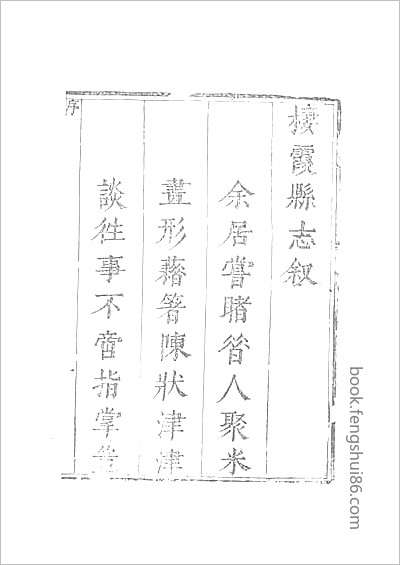 棲霞縣志叙
余居嘗睹昔人聚米
畫形藉箸陳狀津津
談徃事不啻指掌
序
book.fengshui86.com